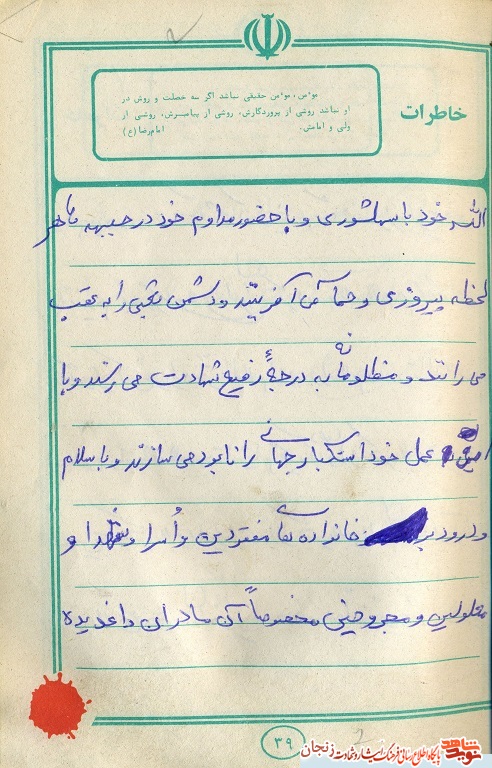 خاطرات
مؤمن، مؤمن حقیقی نباشد اگر سه خصلت و روش در
او نباشد روشی از پروردگارش، روشی از پیامبرش، روشی از
ولی و امامش. امام رضا (ع)
الله خود با سلحشوری و با حضور مداوم خود در جبهه ها هر
لحظه پیروزی و حماسه آفریدند و دشمن بعثی را به عقب
می رانند و مظلومانه به درجهٔ رفیع شهادت می رسند و با
این عمل خود استکبار جهانی را نابود می سازند و با سلام
و درود به خانواده های مفقودین و اُسرا و شهدا و
معلولین و مجروحین مخصوصاً آن مادران داغدیده
۳۹
نوید شاهد پایگاه اطلاع رسانی فرهنگ ایثار و شهادت زنجان